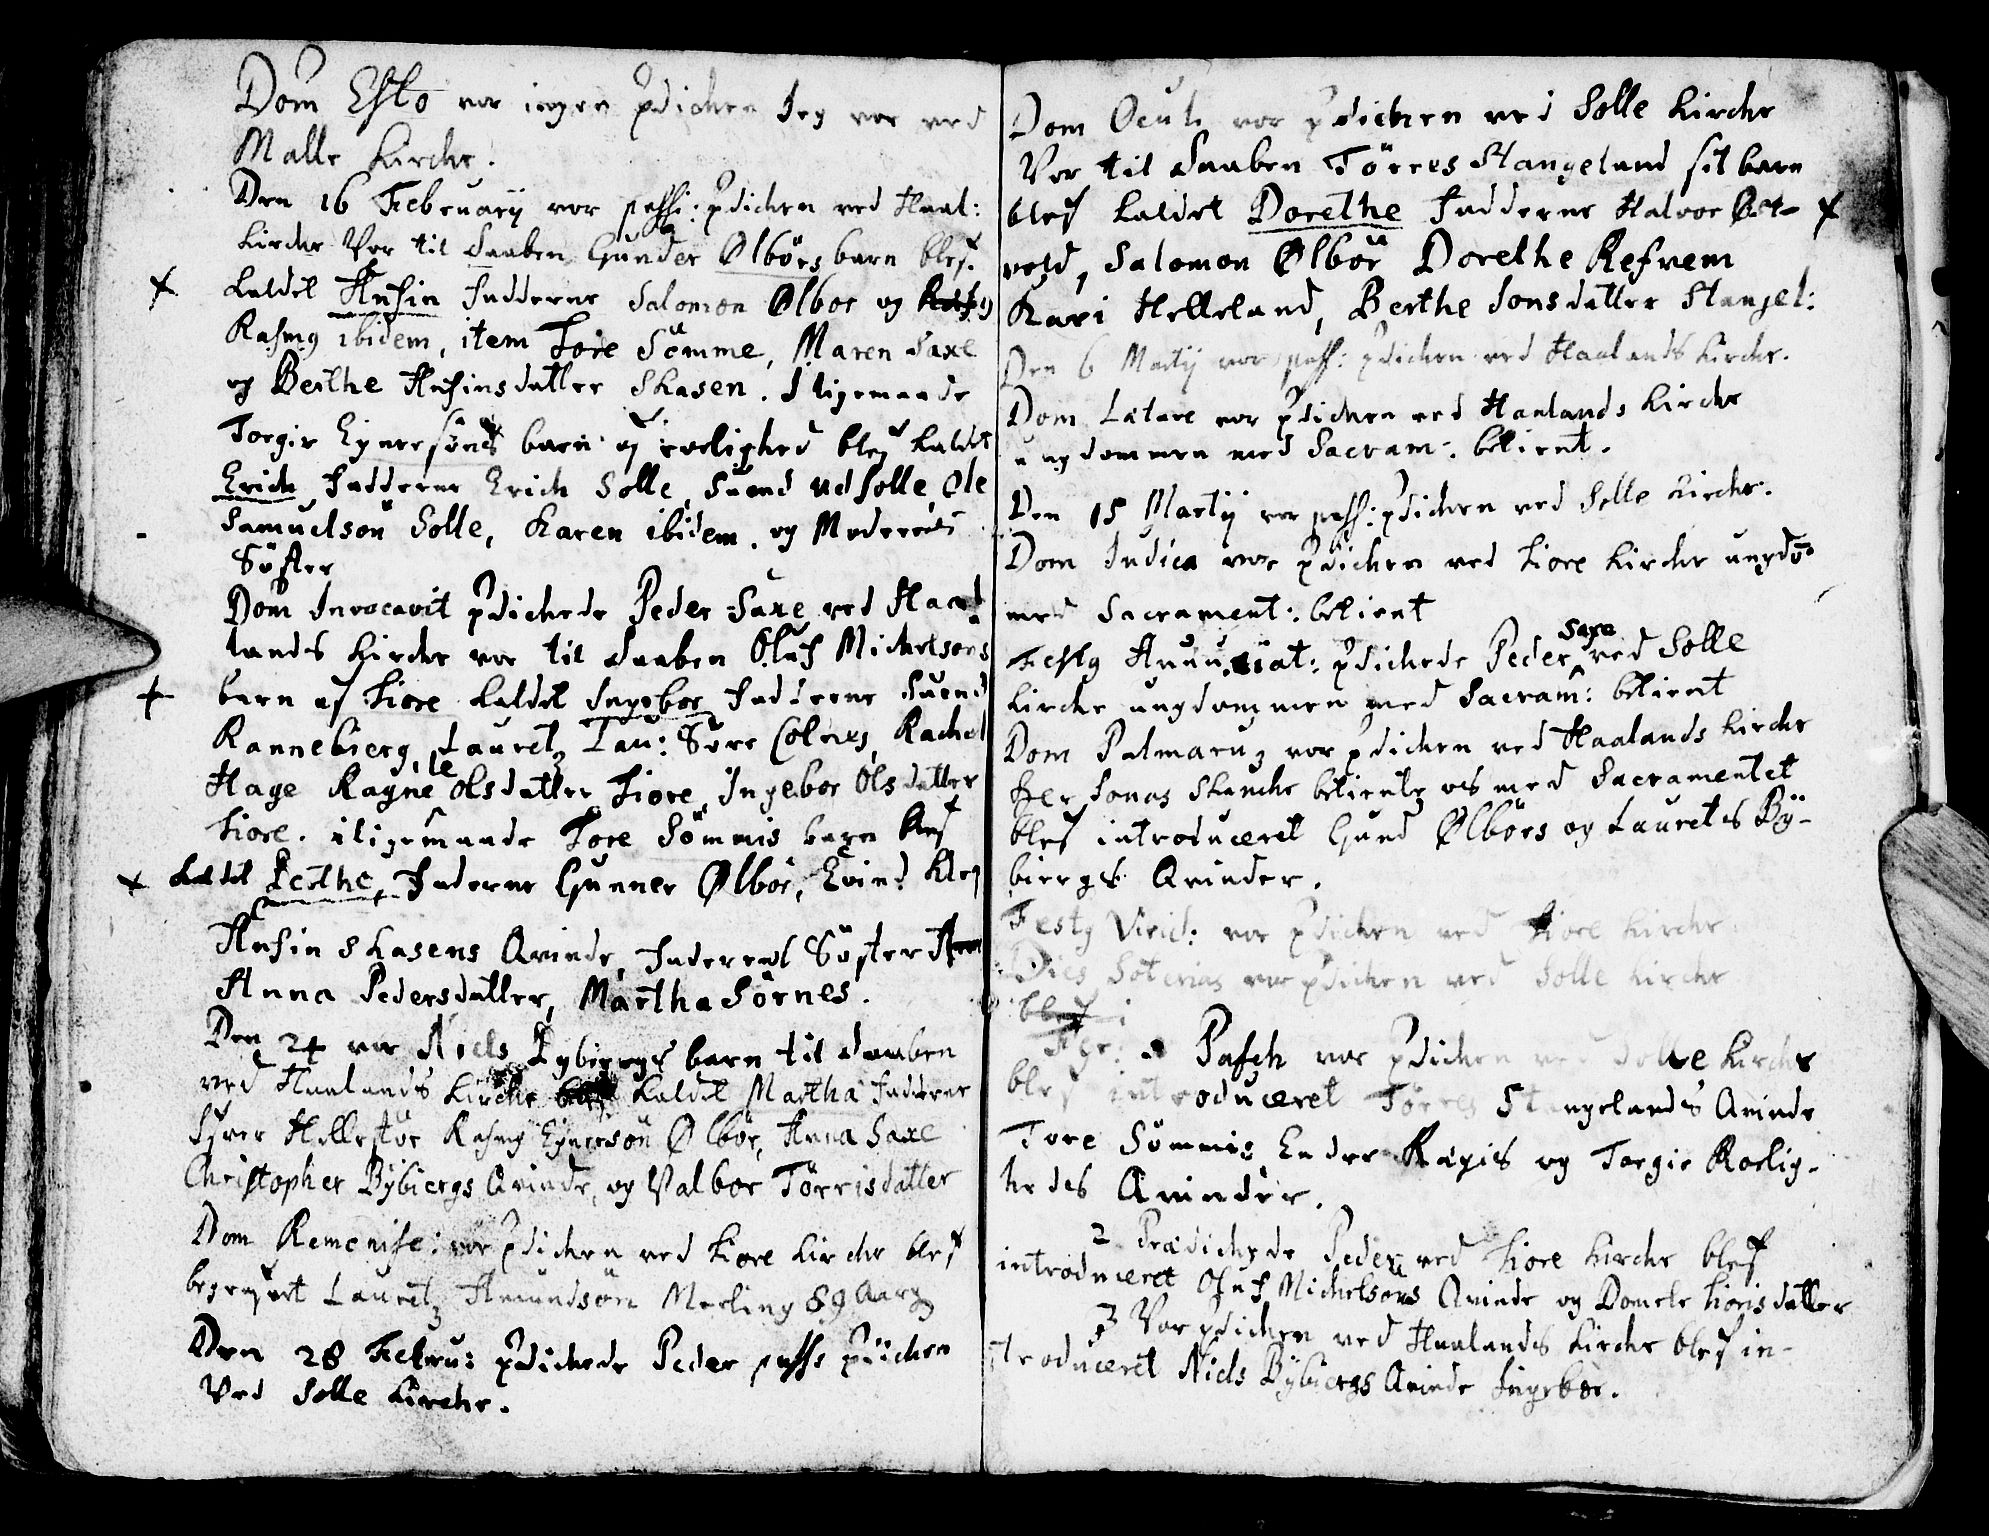 Dom Esto vor ingen pdichen Jeg vor ved
Malle Kirche.
Den 16 Februarij vor passi: pdichen ved Haal:
Kirche Vor til Daaben Gunder Ølbörs barn blef
kaldet Ansin Fadderne Salomon Ølbor og
Rasmg ibidem, item Tore Sömme, Maren Saxe
og Berthe Ansinsdatter Skasen. I ligemaade
Torgir Eyversöns barn af roelighed blef kaldet
Erich Fadderne Erich Solle, Suend udsolle, Ole
Samuelson Solle, Karen ibidem. og Moderens
Söster
Dom Invocavit pdichede Peder Saxe ved Haa-
lands Kirche vor til Daaben Oluf Michelsons
barn af Tiore kaldet Ingebor Fadderne Suend
Rannebierg, Lauretz Tau: Sore Colnes, Rachel
Hage Ragnele Olsdatter Tiore, Ingebor Olsdatter
Tiore. iligemaade Tore Sömmis barn blef
kaldet Berthe, Faderne Gunner Ølbör, Evind Klep
Ansin Skasens Qvinde, Faderens Söster
Anna Pedersdatter, Martha Sörnes.
Den 24 vor Niels Bybiergs barn til Daaben
ved Haalands Kirche kaldet Martha Fadderne
Sjver Hellestöe Rasmg Eynersön Ølbor, Anna Saxe
Christopher Bÿbiergs Qvinde, og Valbor Törrisdatter
Dom Remenise: vor pdichen ved Tiore Kirche blef
begrafvet Lauretz Amundsön Merling 89 Aarg
Den 28 Febru: pdichede Peder passi pdichen
Ved Solle Kirche.
Dom Oculi vor pdichen ved Solle Kirche
Vor til Daaben Törres Stangeland sit barn
blef kaldet Dorethe Fadderne Halvor Øst-
vold, Salomon Ølbör Dorethe Refvem
Kari Helleland, Berthe Jonsdatter Stangel:
Den 6 Martij vor pass: pdichen ved Haalands Kirche.
Dom Lætare vor pdichen ved Haalands Kirche
ungdommen med Sacram: betient.
Den 15 Martij vor pass: pdichen ved Solle Kirche.
Dom Judica vor pdichen ved Tiore Kirche ungdō
med Sacrament: betient
Festg Annunciat: pdichede Peder Saxe ved Solle
Kirche ungdommen med Sacram: betient
Dom Palmaruz vor pdichen ved Haalands Kirche
Her Jonas Skanche betiente os med Sacramentet
blef introduceret Gund Ølbörs og Lauretis Bÿ-
biergs Qvinder.
Festg Virid: vor pdichen ved Tiore Kirche
Dies Soterias vor pdichen ved Solle Kirche
blef i
Fer: Pasch vor pdichen ved Solle Kirche
blef introduceret Törres Stangelands Qvinde
Tore Sömmis Endre Rægis og Torgir Roelig-
hedes Qvinder.
2 Prædichede Peder ved Tiore Kirche blef
introduceret Oluf Michelsons Qvinde og Domele Tiorisdatter
3 Vor pdichen ved Haalands Kirche blef in-
troduceret Niels Bÿbiergs Qvinde Ingebor.